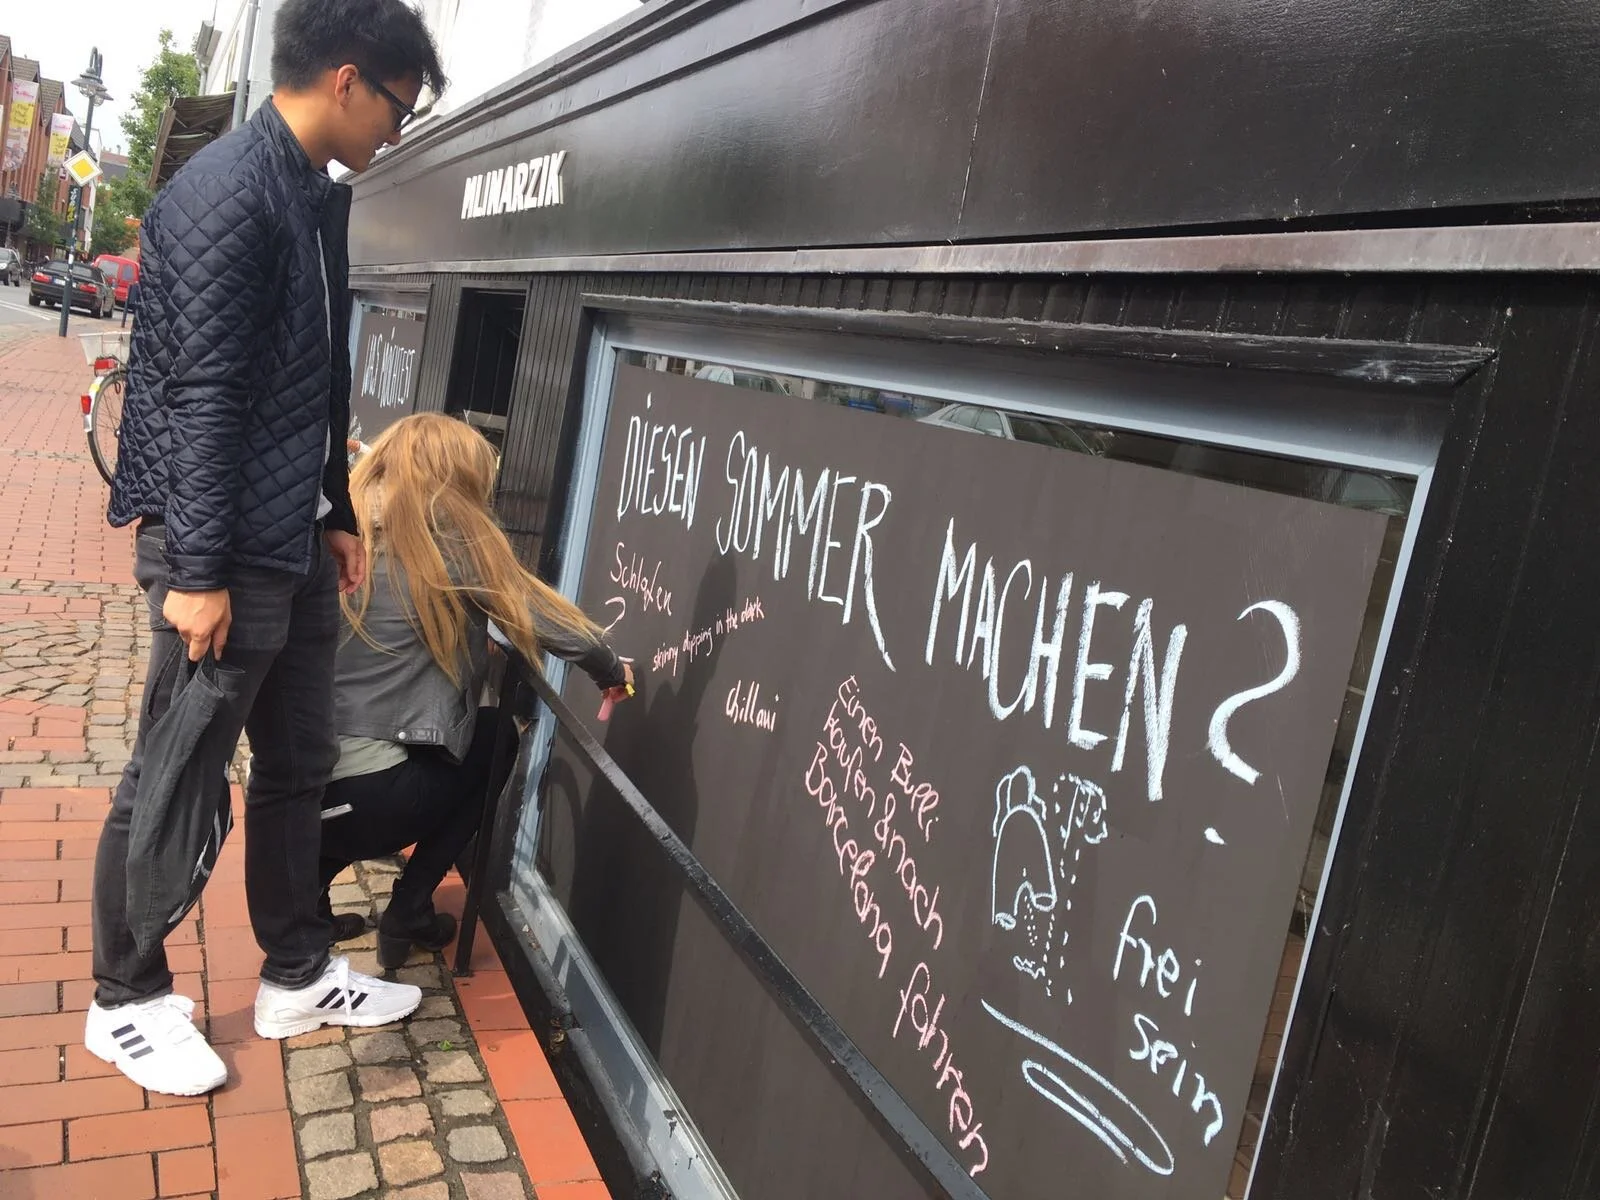 MLINARZIK
WAS MÖCHTEST
DIESEN SOMMER MACHEN?
Schlafen
?
skinny dipping in the dark
Chillaui
Einen Bulli
Kaufen & nach
Barcelona fahren
frei
sein